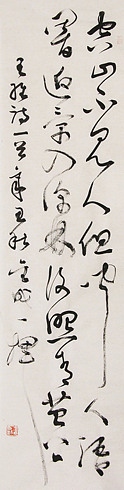 空山不見人但聞人語
響返景入深林復照青苔上
王維詩一首辛丑秋